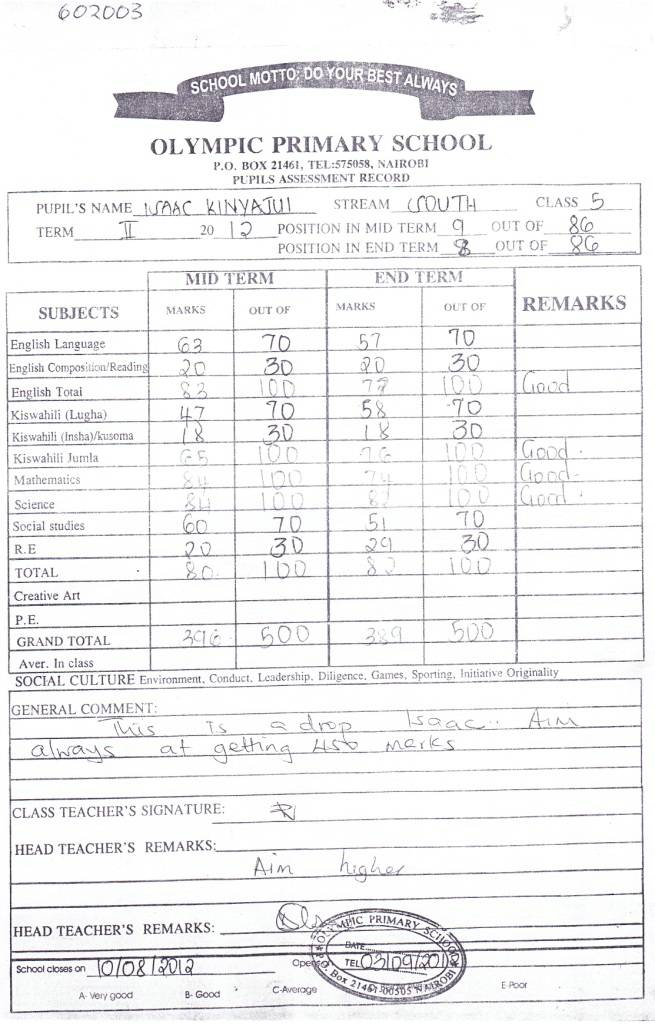 602003
SCHOOL MOTTO: DO YOUR BEST ALWAYS
OLYMPIC PRIMARY SCHOOL
P.O. BOX 21461, TEL:575058, NAIROBI
PUPILS ASSESSMENT RECORD
PUPIL'S NAME ISAAC KINYAJUI STREAM SOUTH CLASS 5
TERM II 2012 POSITION IN MID TERM 9 OUT OF 86
POSITION IN END TERM 8 OUT OF 86
MID TERM END TERM
SUBJECTS MARKS OUT OF MARKS OUT OF REMARKS
English Language 63 70 57 70
English Composition/Reading 20 30 20 30
English Total 83 100 77 100 Good
Kiswahili (Lugha) 47 70 58 70
Kiswahili (Insha)/kusoma 18 30 18 30
Kiswahili Jumla 65 100 76 100 Good
Mathematics 84 100 74 100 Good
Science 84 100 100 Good
Social studies 60 70 51 70
R.E 20 30 29 30
TOTAL 80 100 100
Creative Art
P.E.
GRAND TOTAL 396 500 389 500
Aver. In class
SOCIAL CULTURE Environment, Conduct, Leadership, Diligence, Games, Sporting, Initiative Originality
GENERAL COMMENT:
This is a drop Isaac. Aim
always at getting 450 marks
CLASS TEACHER'S SIGNATURE:
HEAD TEACHER'S REMARKS:
Aim higher
HEAD TEACHER'S REMARKS:
School closes on 10/08/2012 Opens
OLYMPIC PRIMARY SCHOOL
DATE
TEL 03/09/2012
P.O. Box 21461-00505 NAIROBI
A- Very good B- Good C-Average E-Poor